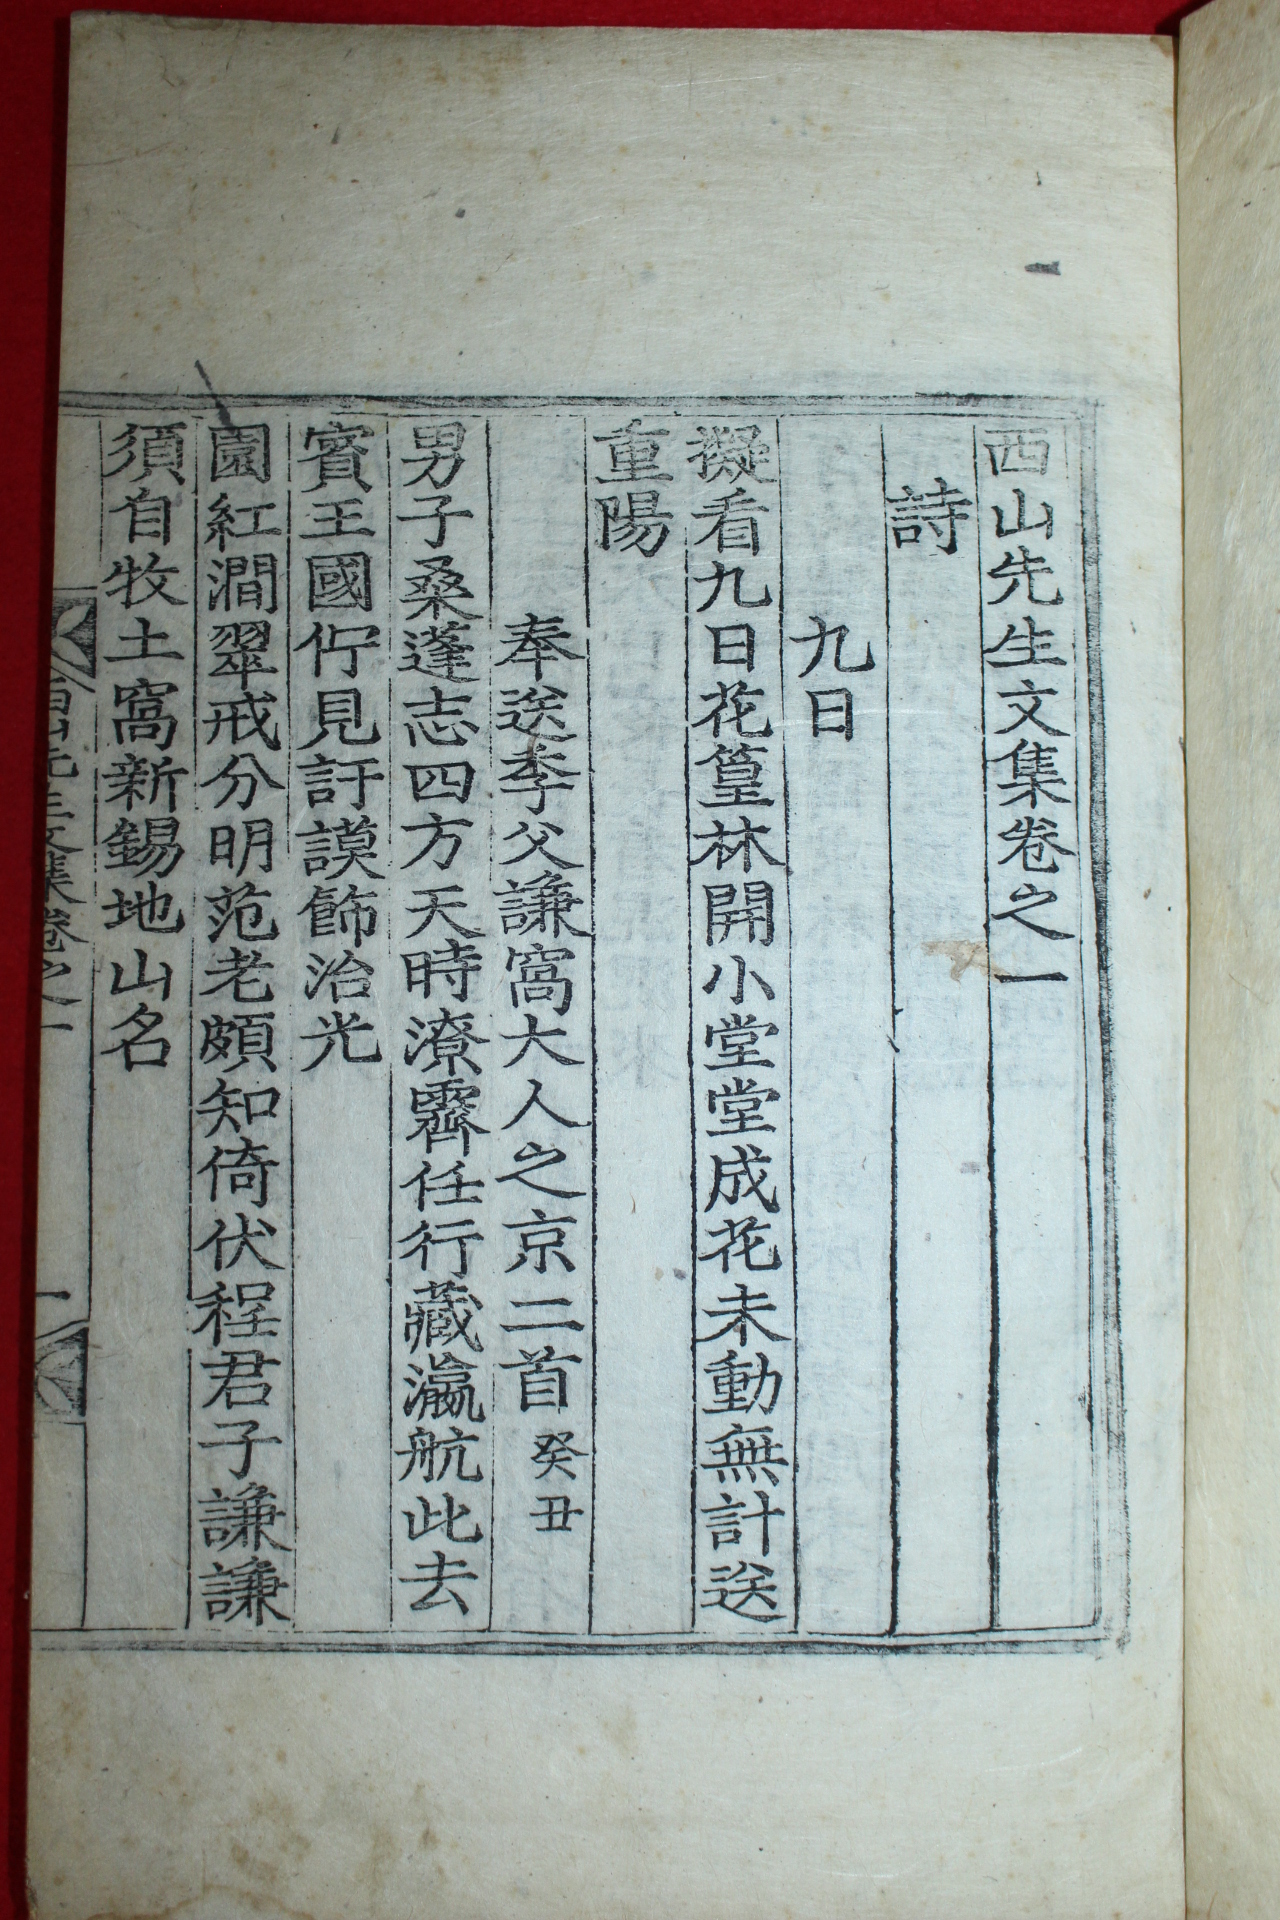 西山先生文集卷之一
詩
九日
擬看九日花篁林開小堂堂成花未動無計送
重陽
奉送季父謙窩大人之京二首癸丑
男子桑蓬志四方天時潦霽任行藏瀛航此去
賓王國佇見訏謨飾治光
園紅澗翠戒分明范老頗知倚伏程君子謙謙
須自牧土窩新錫地山名
西山先生文集卷之一
一